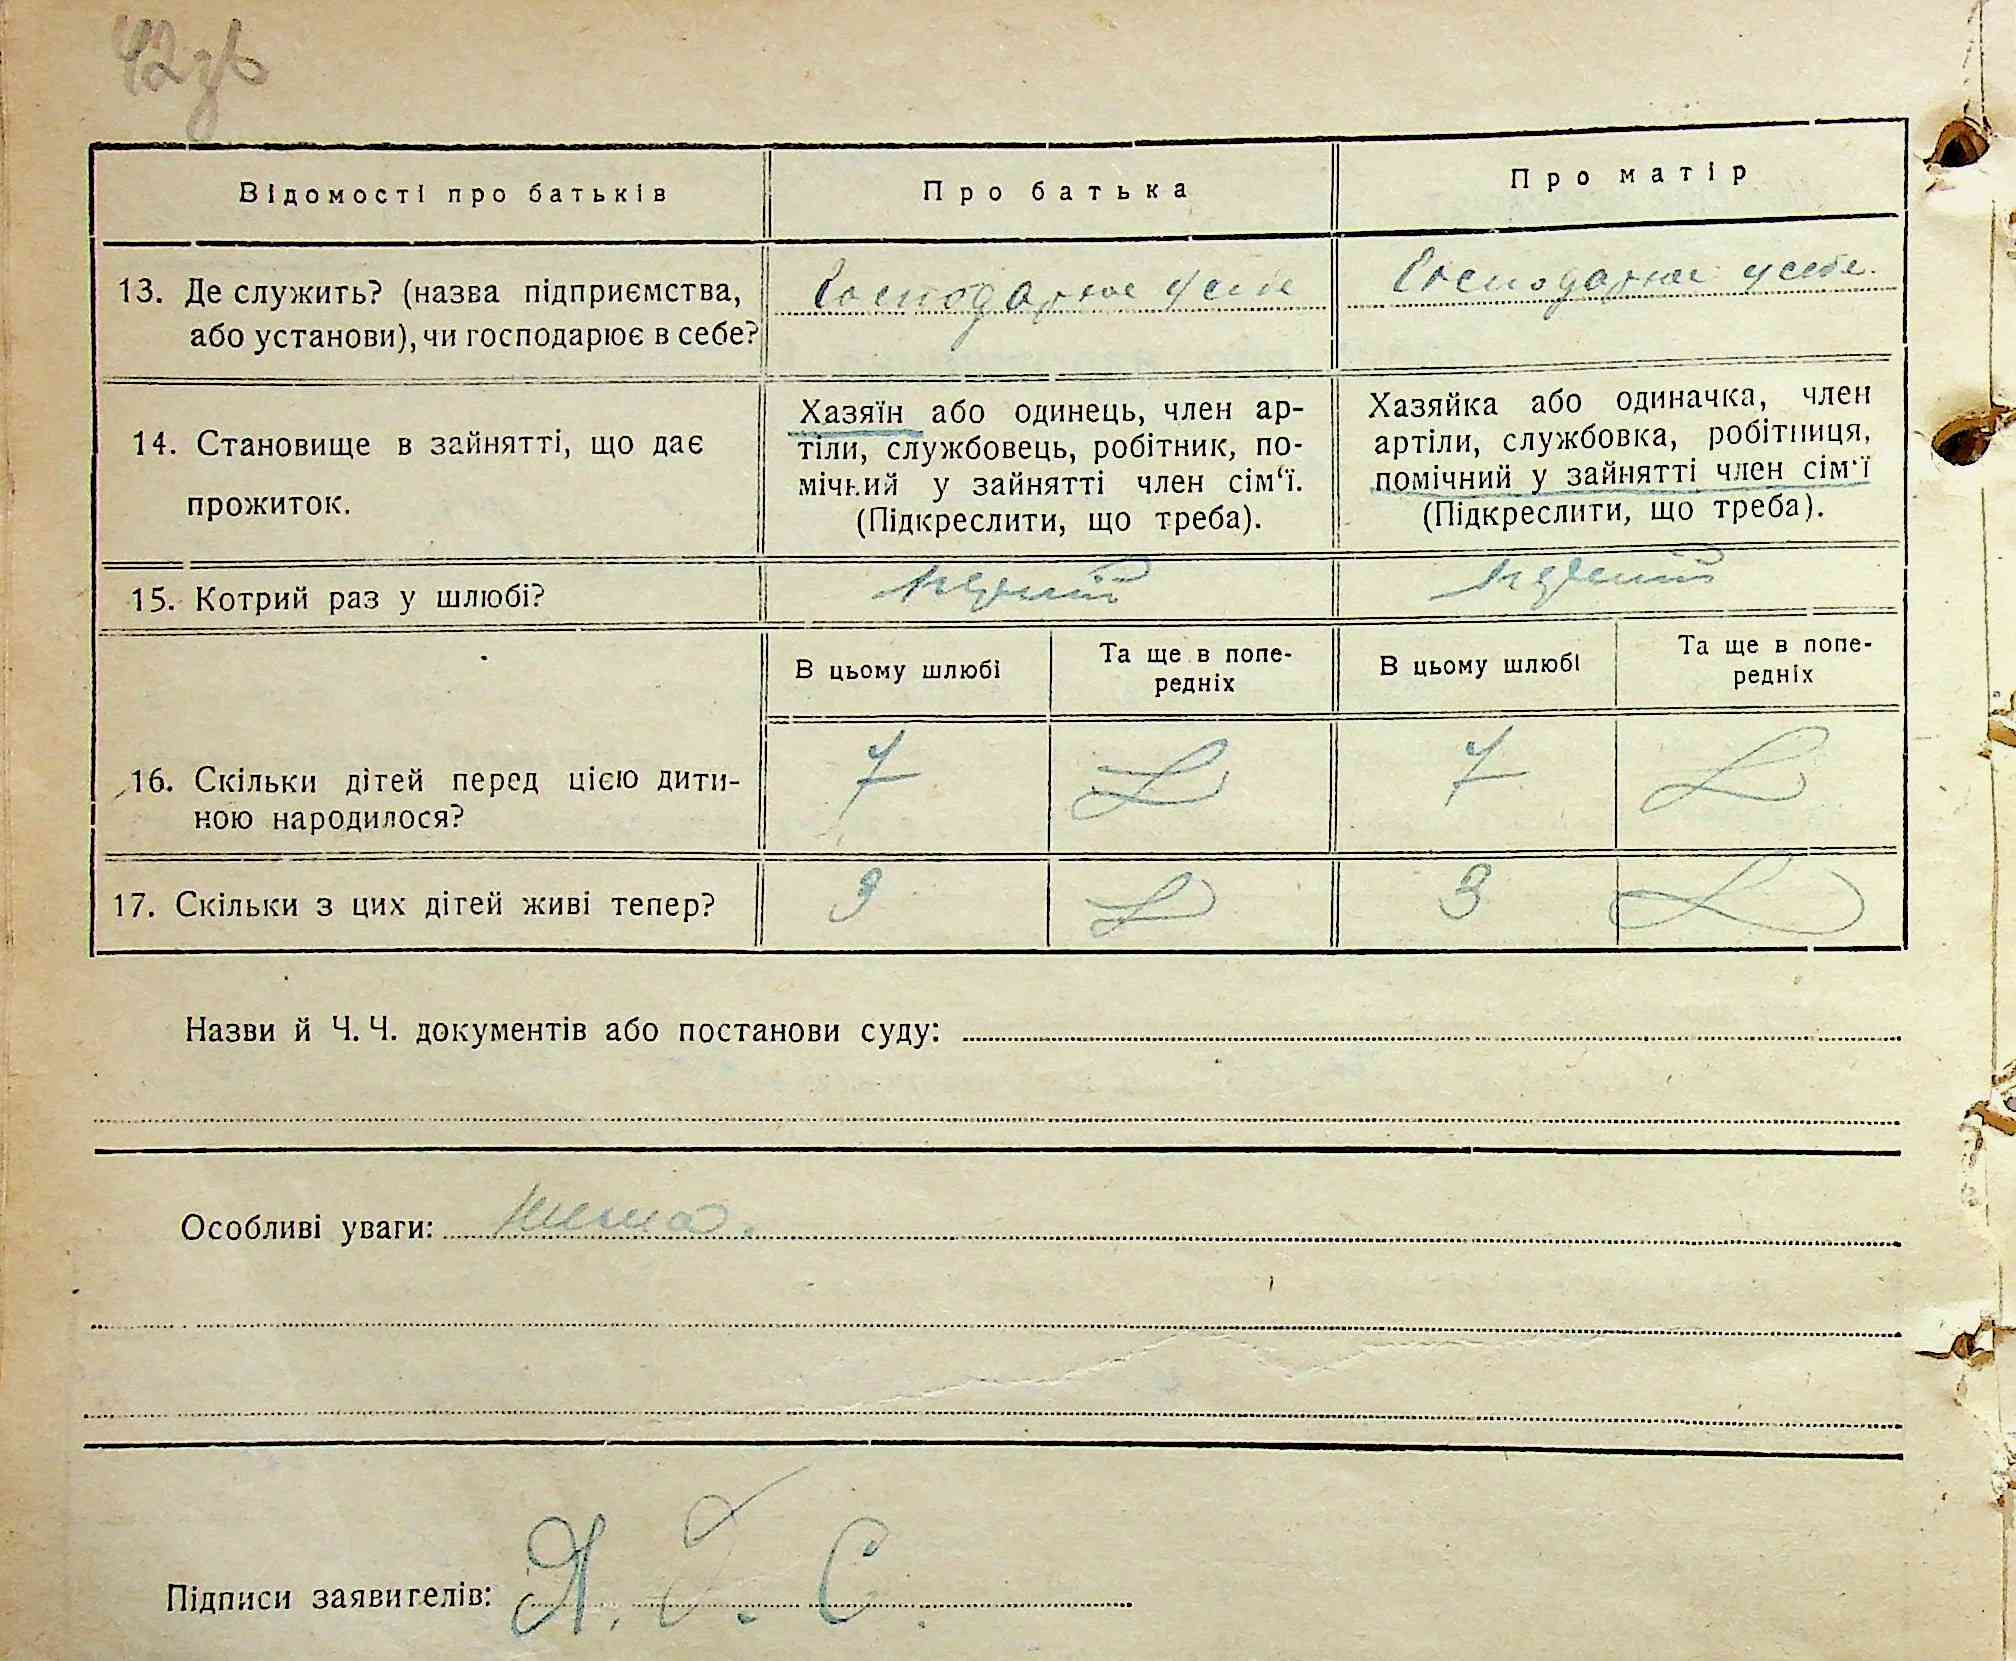 42 зв
Відомості про батьків
Про батька
Про матір
13. Де служить? (назва підприємства, або установи), чи господарює в себе?
Господарює у себе
Господарює у себе.
14. Становище в зайнятті, що дає прожиток.
Хазяїн або одинець, член ар-
тіли, службовець, робітник, по-
мічний у зайнятті член сім‘ї.
(Підкреслити, що треба).
Хазяйка або одиначка, член
артіли, службовка, робітниця,
помічний у зайнятті член сім‘ї
(Підкреслити, що треба).
15. Котрий раз у шлюбі?
перший
перший
В цьому шлюбі
Та ще в попе-
редніх
В цьому шлюбі
Та ще в попе-
редніх
16. Скільки дітей перед цією дити-
ною народилося?
7
7
17. Скільки з цих дітей живі тепер?
3
3
Назви й Ч. Ч. документів або постанови суду:
Особливі уваги: нема.
Підписи заявителів: